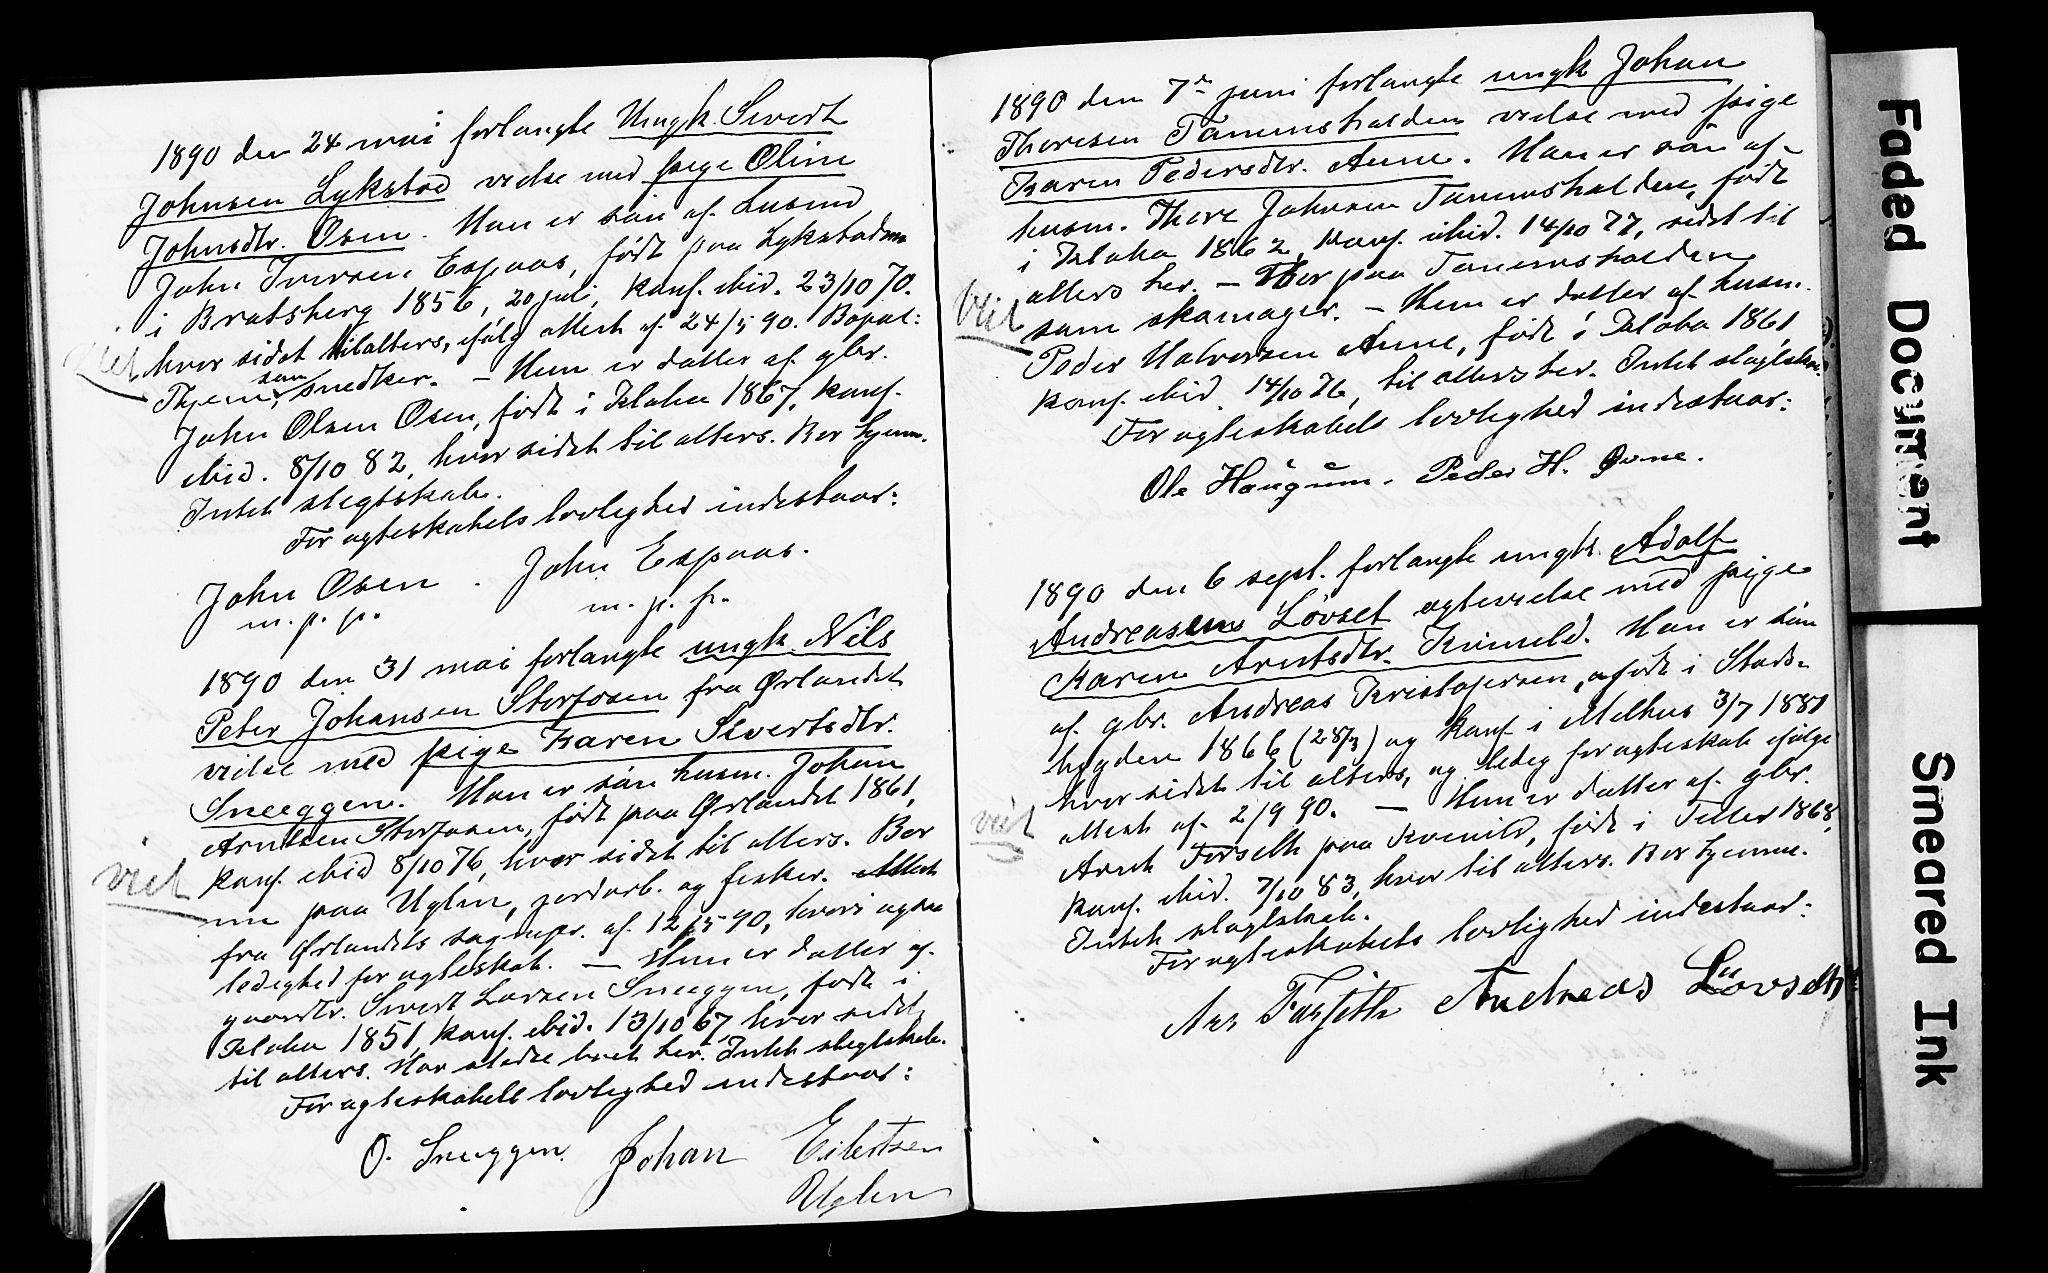 1890 den 24 mai forlangte Ungk. Sivert
Johnsen Lykstad vielse med pige Oline
Johnsdtr. Osen. Han er sön af Lusind
John Iversen Espaas, födt paa Lykstadmo
i Bratsberg 1856, 20 juli, konf. ibid. 23/10 70.
hvor sidst tilalters, ifölg attest af 24/5 90. Bopæl:
Viet
Thjem, som snedker. – Hun er datter af gbr.
John Olsen Osen, födt i Klæbu 1867, konf.
ibid. 8/10 82, hvor sidst til alters. Bor hjem.
Intet slegtskab.
For ægteskabets lovlighed indestaar:
John Osen. John Espaas.
m. p. p. m. p. p.
1890 den 31 mai forlangte ungk. Nils
Peter Johansen Storfosen fra Ørlandet
vielse med pige Karen Sivertsdtr.
Sneeggen. Han er sön husm. Johan
Arntsen Storfosen, födt paa Ørlandet 1861,
konf. ibid 8/10 76, hvor sidst til alters. Bor
viet
nu paa Uglen, jordarb. og fisker. Attest
fra Ørlandets sognepr. af 12/5 90, hvori ogsaa
ledighed for ægteskab. – Hun er datter af
gaardbr. Sivert Larsen Sneeggen, födt i
Klæbu 1851, konf. ibid. 13/10 67, hvor sidst
til alters. Har stedse boet her. Intet slegtskab.
For ægteskabets lovlighed indestaar:
O. Sneeggen. Johan Eilertsen
Uglen
1890 den 7de juni forlangte ungk Johan
Thoresen Tanemshalden vielse med pige
Karen Pedersdtr. Aune. Han er sön af
husm. Thore Johnsen Tanemshalden, födt
i Klæbu 1862, konf. ibid. 14/10 77, sidst til
alters her. – Bor paa Tanemshalden
Viet
som skomager. – Hun er datter af husm.
Peder Halvorsen Aune, födt i Klæbu 1861
konf. ibid. 14/10 76, til alters her. Intet slægtskab.
For ægteskabets lovlighed indestaar:
Ole Haugum. Peder H. Ovne.
1890 den 6 sept. forlangte ungk. Adolf
Andreassen Lövset ægtevielse med pige
Karen Arntsdtr. Kvineld. Han er sön
af gbr. Andreas Kristofersen, födt i Stads-
bygden 1866 (28/3) og konf i Melhus 3/7 1881
hvor sidst til alters, og ledig for ægteskab ifölge
attest af 2/9 90. – Hun er datter af gbr.
viet
Arnt Forseth paa Kvenild, födt i Tiller 1868,
konf. ibid. 7/10 83, hvor til alters. Bor hjemme.
Intet slægtskab.
For ægteskabets lovlighed indestaar:
Arn Forseth Andreas Lövseth
Faded Document
Smeared Ink